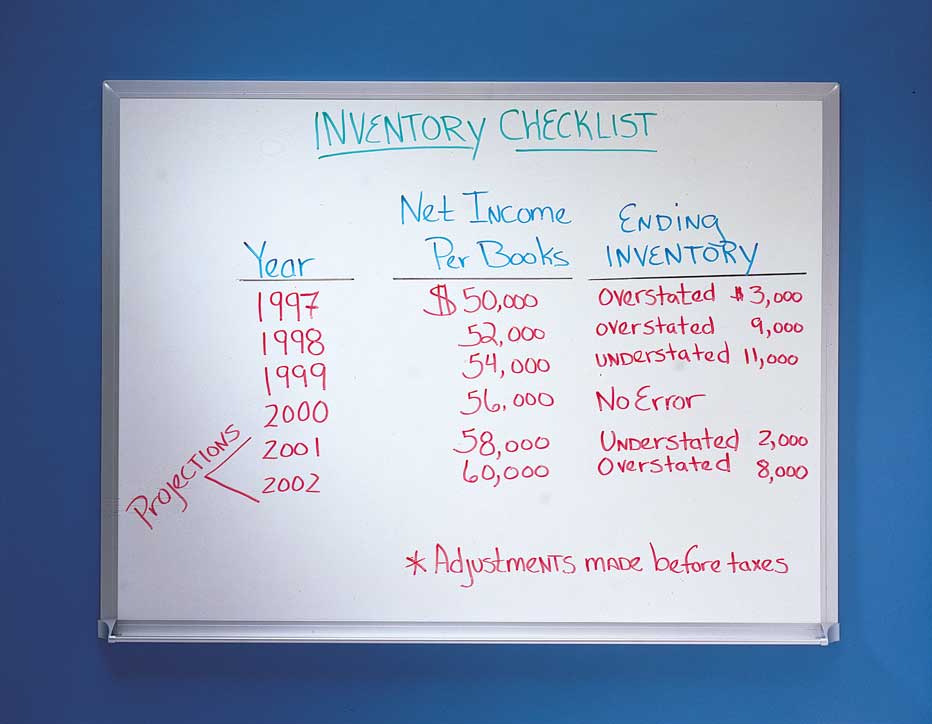 INVENTORY CHECKLIST
Year Net Income Per Books ENDING INVENTORY
1997 $ 50,000 overstated $ 3,000
1998 52,000 overstated 9,000
1999 54,000 understated 11,000
2000 56,000 No Error
2001 58,000 Understated 2,000
2002 60,000 Overstated 8,000
PROJECTIONS
* Adjustments made before taxes